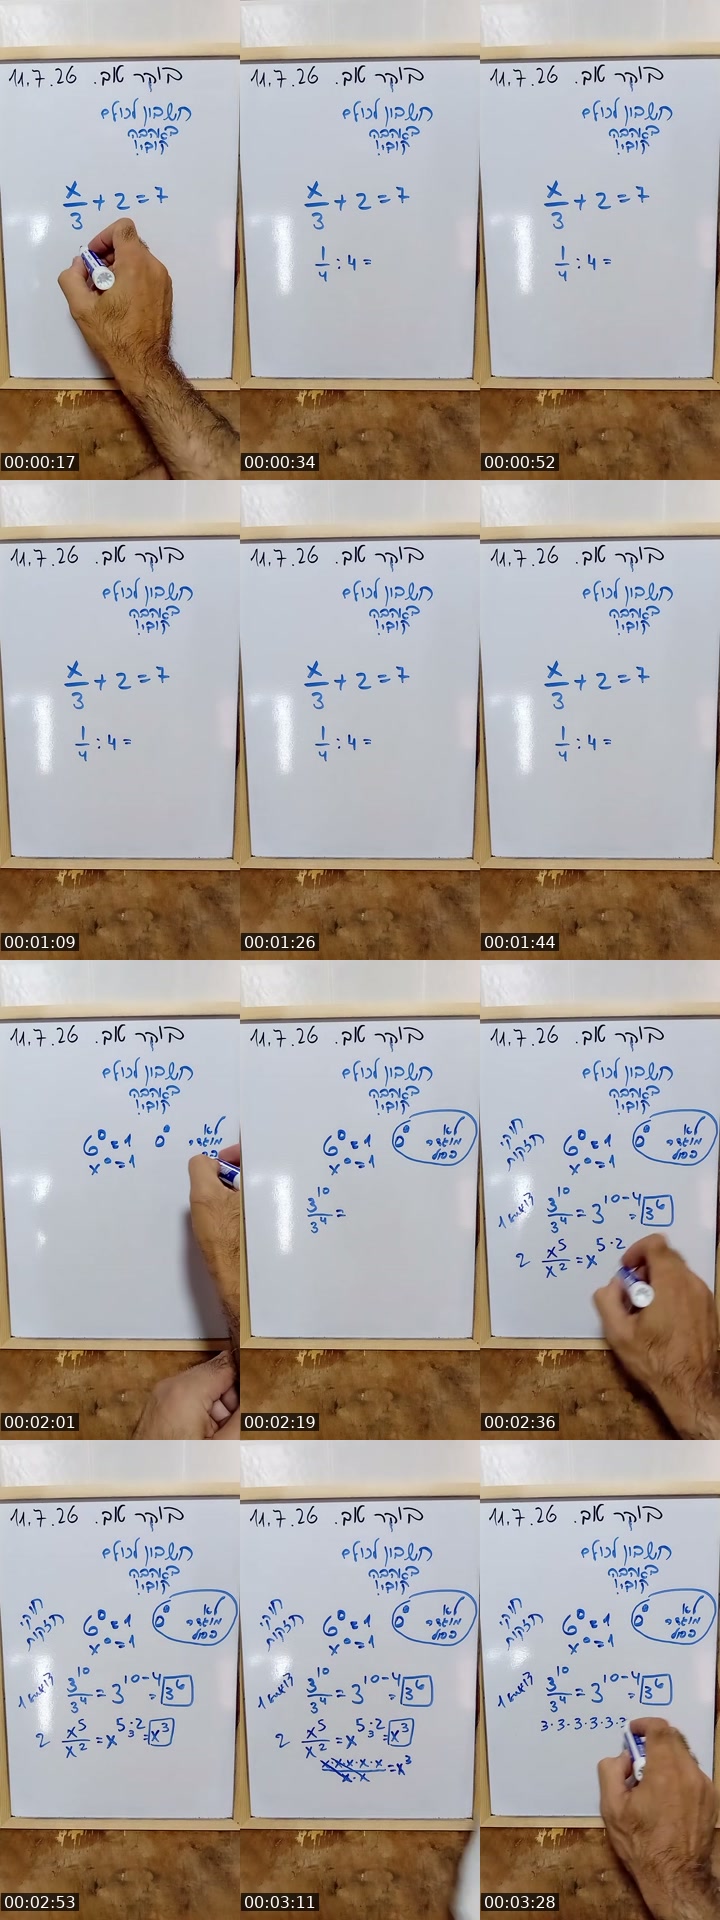 11.7.26 בוקר טוב.
חשבון לכולם
באהבה
חובי!
x/3 + 2 = 7
00:00:17
11.7.26 בוקר טוב.
חשבון לכולם
באהבה
חובי!
x/3 + 2 = 7
1/4 : 4 =
00:00:34
11.7.26 בוקר טוב.
חשבון לכולם
באהבה
חובי!
x/3 + 2 = 7
1/4 : 4 =
00:00:52
11.7.26 בוקר טוב.
חשבון לכולם
באהבה
חובי!
x/3 + 2 = 7
1/4 : 4 =
00:01:09
11.7.26 בוקר טוב.
חשבון לכולם
באהבה
חובי!
x/3 + 2 = 7
1/4 : 4 =
00:01:26
11.7.26 בוקר טוב.
חשבון לכולם
באהבה
חובי!
x/3 + 2 = 7
1/4 : 4 =
00:01:44
11.7.26 בוקר טוב.
חשבון לכולם
באהבה
חובי!
6⁰ = 1 0⁰ לא מוגדר
x⁰ = 1
00:02:01
11.7.26 בוקר טוב.
חשבון לכולם
באהבה
חובי!
6⁰ = 1 0⁰ לא מוגדר
x⁰ = 1
3¹⁰/3⁴ =
00:02:19
11.7.26 בוקר טוב.
חשבון לכולם
באהבה
חובי!
חוקי חזקות
6⁰ = 1 0⁰ לא מוגדר
x⁰ = 1
1 3¹⁰/3⁴ = 3¹⁰⁻⁴ = 3⁶
2 x⁵/x² = x⁵⁻²
00:02:36
11.7.26 בוקר טוב.
חשבון לכולם
באהבה
חובי!
חוקי חזקות
6⁰ = 1 0⁰ לא מוגדר
x⁰ = 1
1 3¹⁰/3⁴ = 3¹⁰⁻⁴ = 3⁶
2 x⁵/x² = x⁵⁻² = x³
00:02:53
11.7.26 בוקר טוב.
חשבון לכולם
באהבה
חובי!
חוקי חזקות
6⁰ = 1 0⁰ לא מוגדר
x⁰ = 1
1 3¹⁰/3⁴ = 3¹⁰⁻⁴ = 3⁶
2 x⁵/x² = x⁵⁻² = x³
x·x·x·x·x/x·x = x³
00:03:11
11.7.26 בוקר טוב.
חשבון לכולם
באהבה
חובי!
חוקי חזקות
6⁰ = 1 0⁰ לא מוגדר
x⁰ = 1
1 3¹⁰/3⁴ = 3¹⁰⁻⁴ = 3⁶
3·3·3·3·3·3
00:03:28